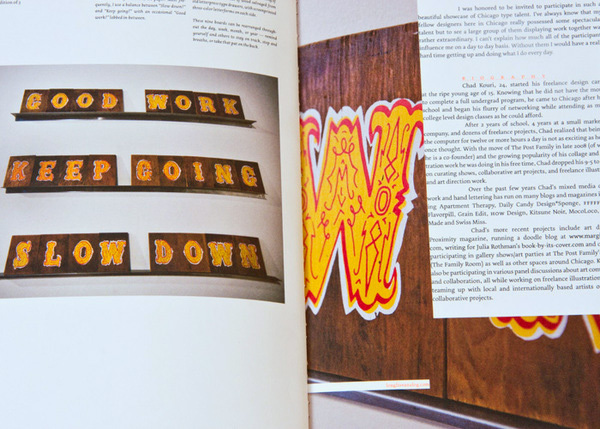 dition of 3
quently, I use a balance between "Slow down!"
and "Keep going!" with an occasional "Good
work!" tabbed in between.
These nine boards can be rearranged through-
out the day, week, month, or year—
yourself and others to stay on track, stop and
breathe, or take that pat on the back.
GOOD WORK
KEEP GOING
SLOW DOWN
I was honored to be invited to participate in such a
beautiful showcase of Chicago type talent. I've always know that my
fellow designers here in Chicago really possessed some spectacular
talent but to see a large group of them displaying work together was
rather extraordinary. I can't explain how much all of the participants
influence me on a day to day basis. Without them I would have a real
hard time getting up and doing what I do every day.
BIOGRAPHY
Chad Kouri, 24, started his freelance design car
at the ripe young age of 15. Knowing that he did not have the mo
to complete a full undergrad program, he came to Chicago after h
school and began his flurry of networking while attending as m
college level design classes as he could afford.
After 2 years of school, 4 years at a small market
company, and dozens of freelance projects, Chad realized that being
the computer for twelve or more hours a day is not as exciting as he
once thought. With the move of The Post Family in late 2008 (of w
he is a co-founder) and the growing popularity of his collage and
ration work he was doing in his free time, Chad dropped his 9-5 to
on curating shows, collaborative art projects, and freelance illust
and art direction work.
Over the past few years Chad's mixed media c
work and hand lettering has run on many blogs and magazines i
ing Apartment Therapy, Daily Candy Design*Sponge, FFFFF
Flavorpill, Grain Edit, HOW Design, Kitsune Noir, MocoLoco,
Made and Swiss Miss.
Chad's more recent projects include art d
Proximity magazine, running a doodle blog at www.marg
.com, writing for Julia Rothman's book-by-its-cover.com and c
participating in gallery shows/art parties at The Post Family'
(The Family Room) as well as other spaces around Chicago. H
also be participating in various panel discussions about art com
and collaboration, all while working on freelance illustration
teaming up with local and internationally based artists o
collaborative projects.
W